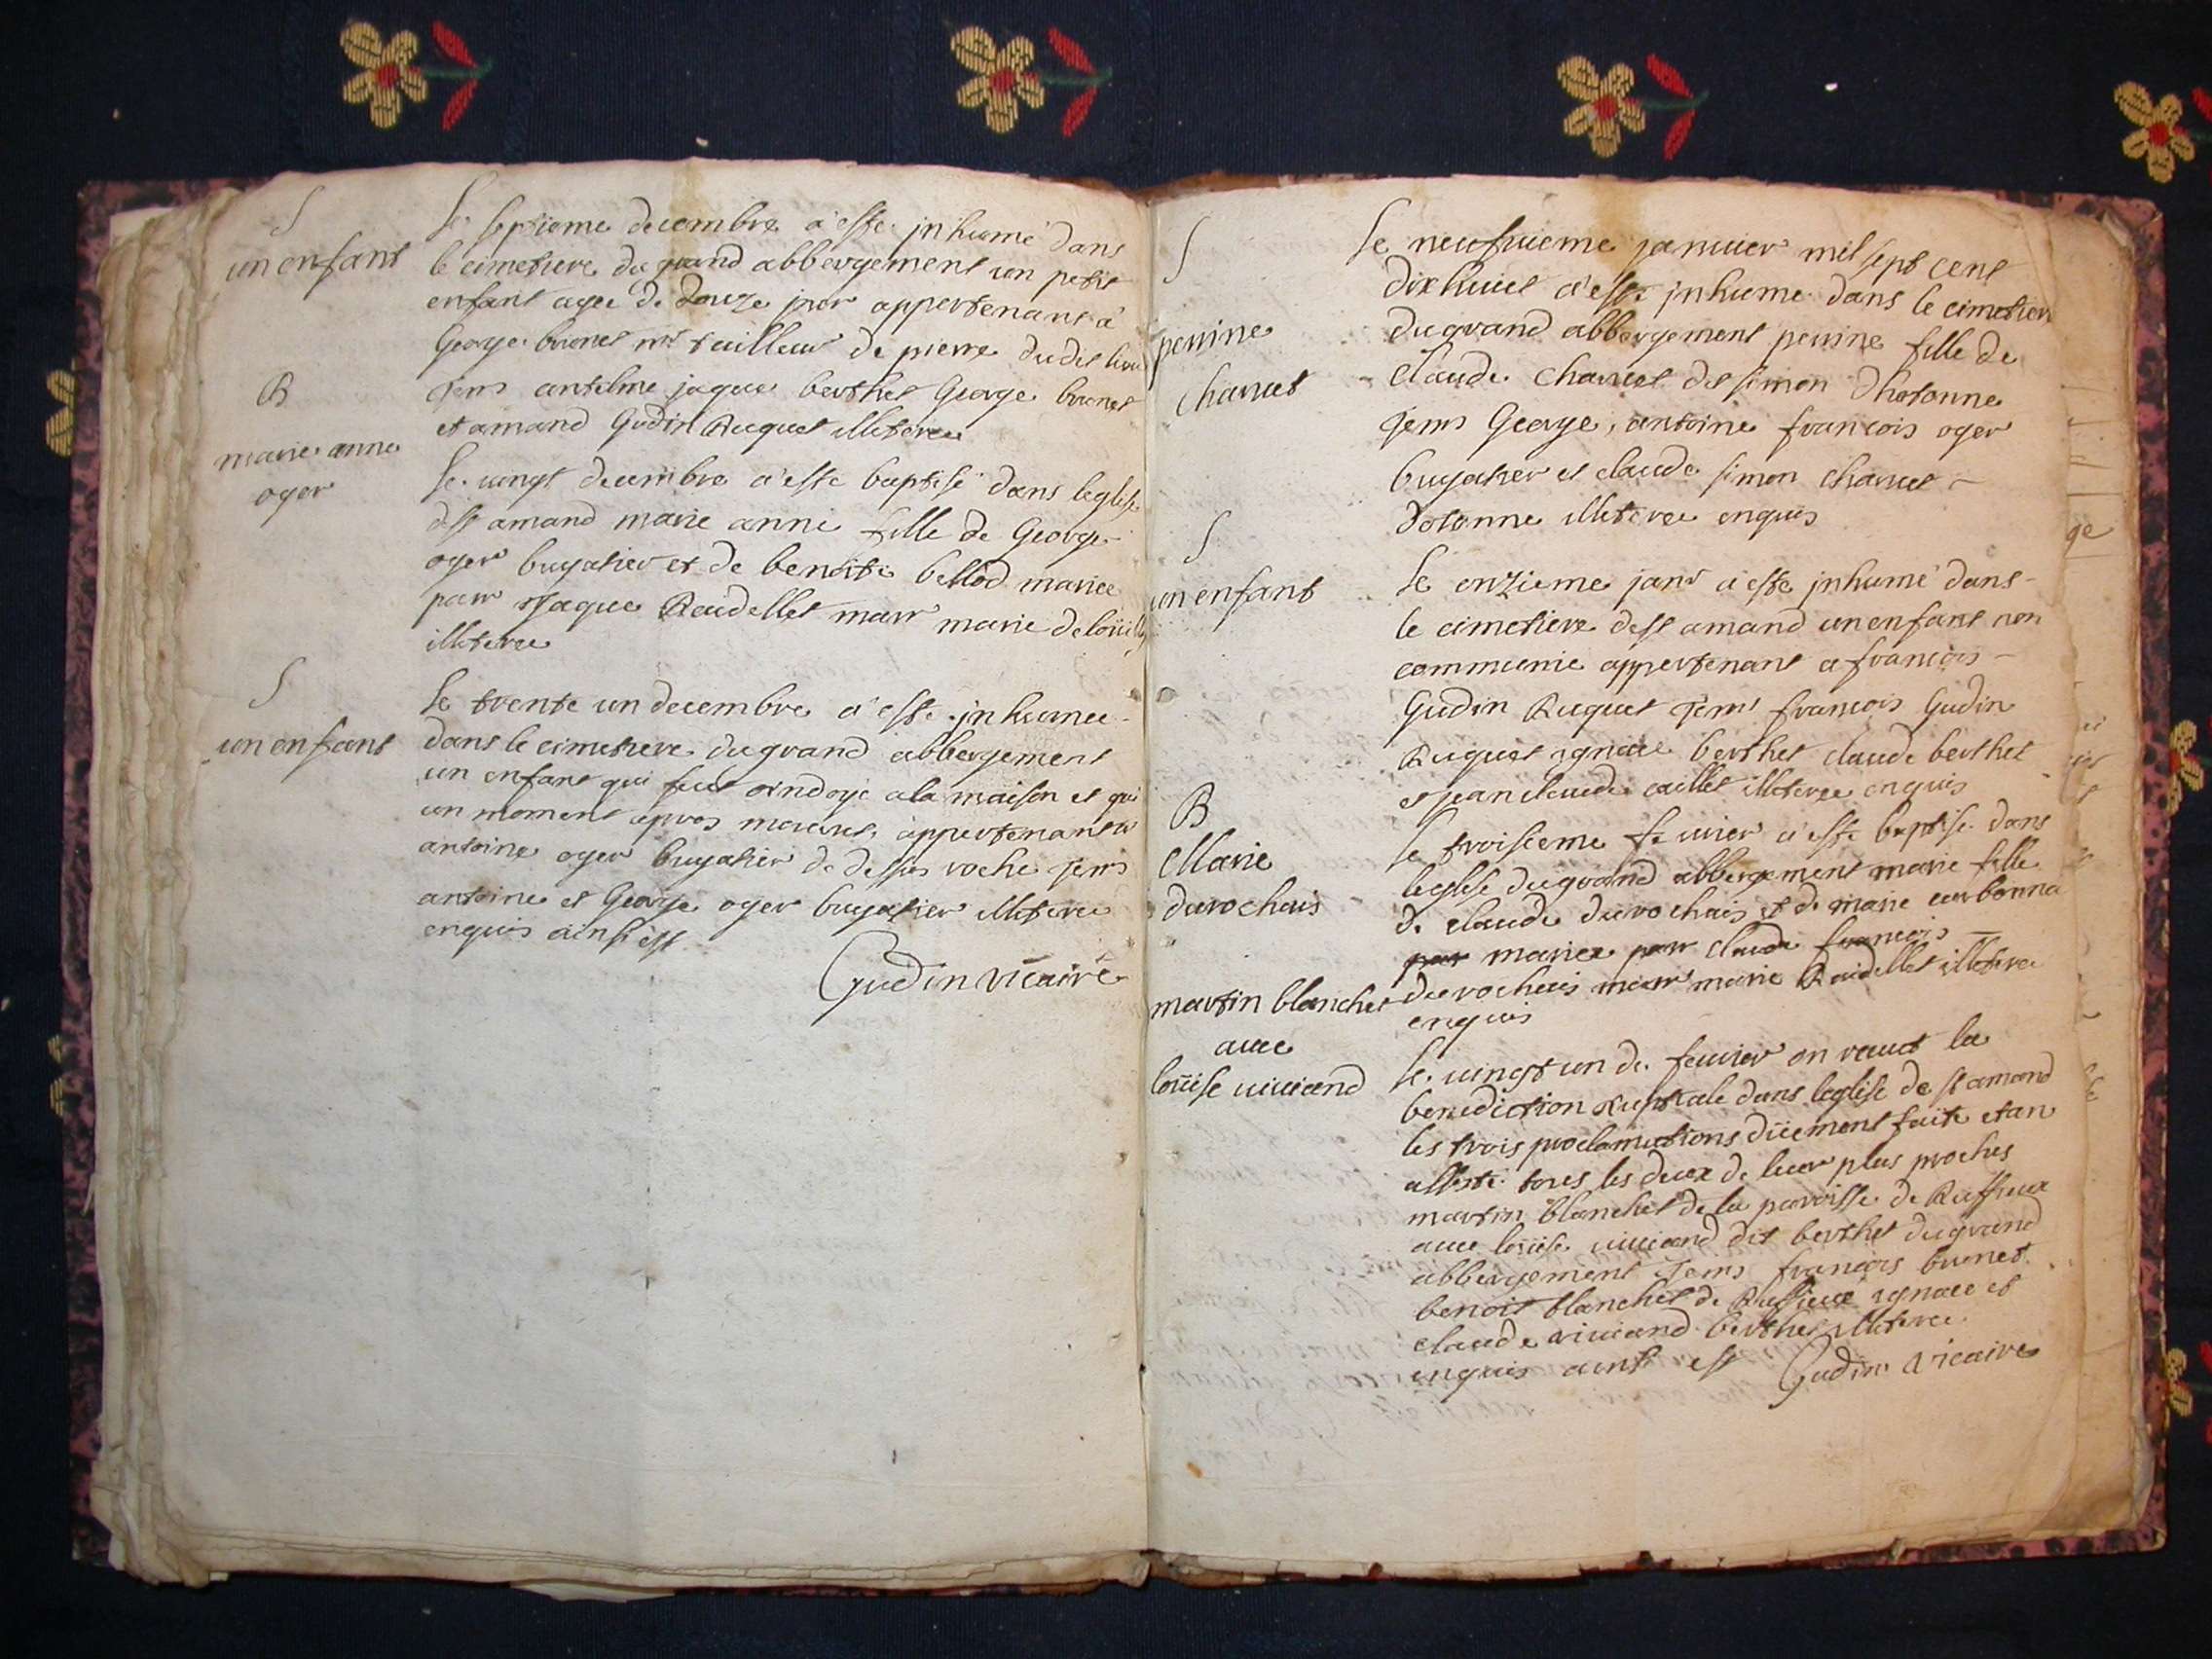 S
un enfant
le septieme decembre a esté inhumé dans
le cimetiere du grand abbergement un petit
enfant agee de douze jour appertenant a
George brunet mt tailleur de pierre dudit lieu
tems antelme jaques berthet George brunet
et amand Gudin Ruquet illiteree
B
marie anne
oger
le vingt decembre a esté baptisé dans leglise
dst amand marie anne fille de George
oger bugatier et de benoite bellod mariee
parr jaques Raidellet marr marie delouille
illiteree
S
un enfant
le trente un decembre a esté inhumee
dans le cimetiere du grand abbergement
un enfant qui feut ondoye a la maison et qui
un moment apres mourut, appertenant a
antoine oger bugatier de dessus roche tems
antoine et George oger bugatier illiteree
enquis ainsi est
Gudin vicaire
S
perrine
charvet
le neufvieme janvier mil sept cent
dix huict a esté inhume dans le cimetier
du grand abbergement perrine fille de
claude charvet dit simon dhotonne
tems George, antoine francois oger
bugatier et claude simon charvet
dotonne illiteree enquis
S
un enfant
le onzieme janr a esté inhumé dans
le cimetiere dest amand un enfant non
communie appertenant a francois
Gudin Ruquet tems francois Gudin
Ruquet ignace berthet claude berthet
et jean claude caillet illiteree enquis
B
Marie
durochais
le troisieme fevrier a esté baptisé dans
leglise du grand abbergement marie fille
de claude durochais et de marie carbonna
par mariee parr claude francois
durochais marr marie Raidellet illiteree
enquis
martin blanchet
avec
louise viviand
le vingt un de fevrier on receut la
benediction nuptiale dans leglise de st amand
les trois proclamations düement faite etan
assisté tous les deux de leur plus proches
martin blanchet de la paroisse de Ruffieux
avec louise viviand dit berthet du grand
abbergement tems francois brunet
benoit blanchet de Ruffieux ignace et
claude viviand berthet illiteree
enquis ainsi est Gudin vicaire
ge